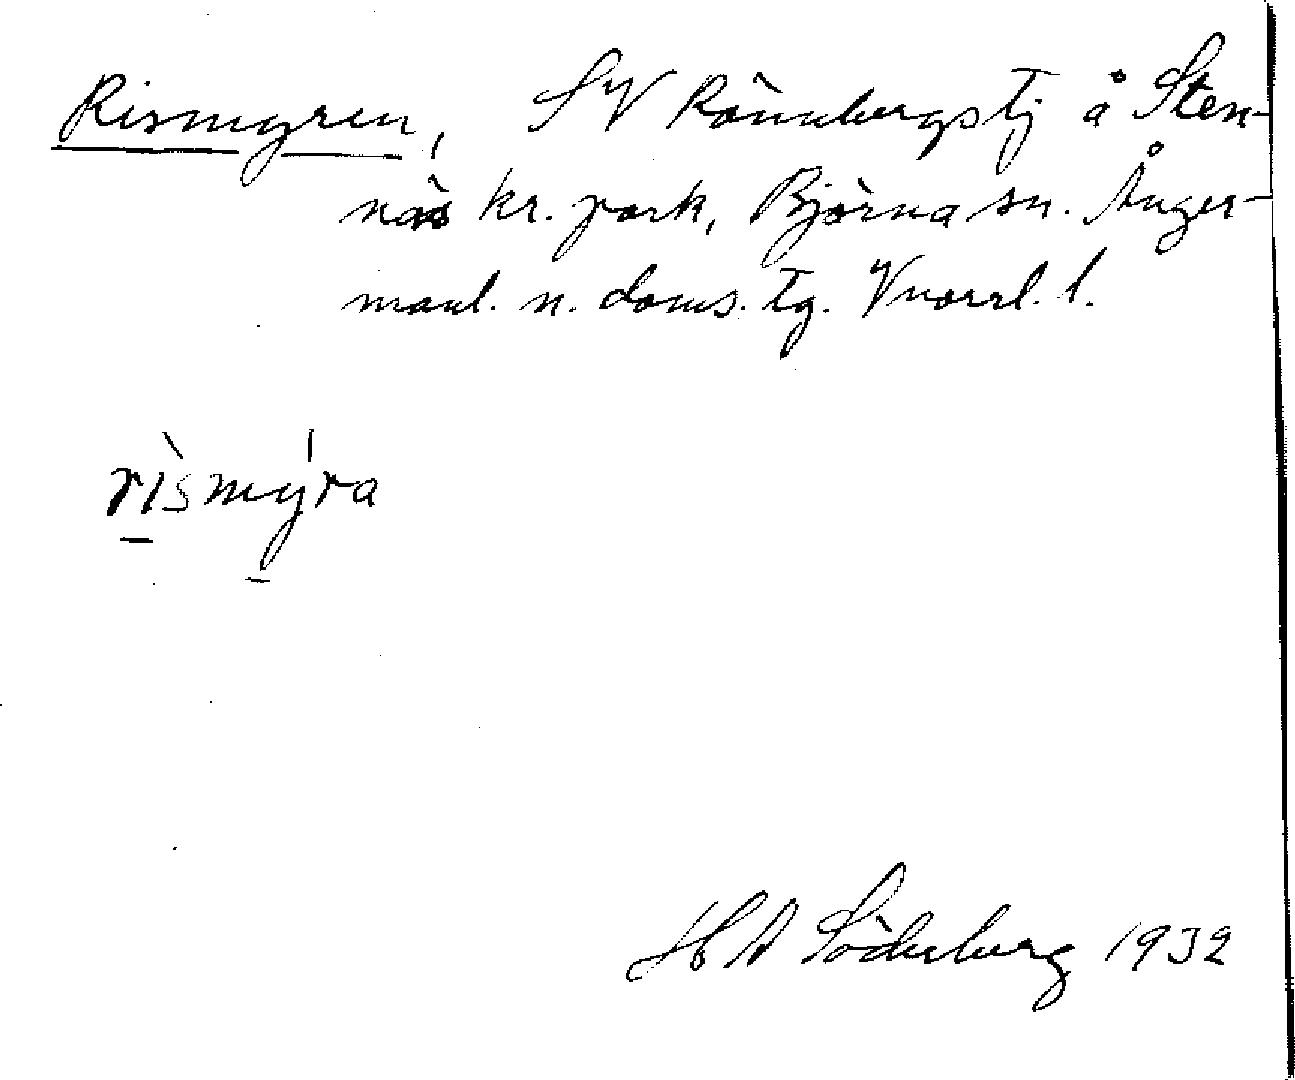 Rismyren, SV Rönnbergstj å Sten-
näs kr. park, Björna sn. Ånger-
manl. n. doms. tg. Vnorrl. l.
rìsmýra
H A Söderberg 1932